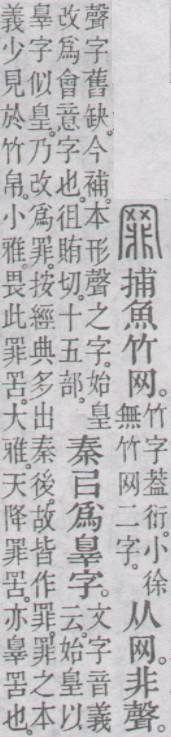 罪
捕魚竹网。
竹字葢衍。小徐
無竹网二字。
从网。非聲。
聲字舊缺。今補。本形聲之字。始皇
改爲會意字也。徂賄切。十五部。
秦㠯爲辠字。
文字音義
云。始皇以
辠字似皇。乃改爲罪。按經典多出秦後。故皆作罪。罪之本
義少見於竹帛。小雅。畏此罪罟。大雅。天降罪罟。亦辠罟也。